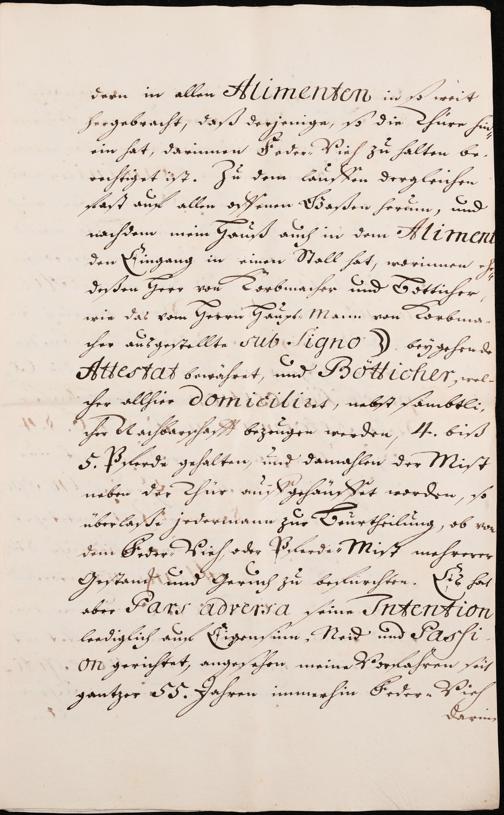 dern in allen Alimenten in so weit
hergebracht, daß derjenige, so die Thüre hin-
ein hat, darinnen Feder-Vieh zu halten be-
rechtiget ist. Zu dem lauffen dergleichen
fast auf allen offenen Gaßen herum, und
nachdem mein Hauß auch in dem Aliment
den Eingang in einen Stall hat, worinnen
deßen Herr von Korbmacher und Bötticher,
wie das vom Herrn Haupt Mann von Korbma-
cher ausgestellte sub Signo D. beygehende
Attestat bewähret, und Bötticher, wel-
cher allhier domiciliret, nebst sambtli-
cher Nachbarschafft bezeugen werden, 4. biß
5. Pferde gehalten, und damahlen der Mist
neben der Thür aufgehäuffet worden, so
überlaße jedermann zur Beurtheilung, ob von
dem Feder-Vieh oder Pferde-Mist mehrerer
Gestanck und Geruch zu befürchten. Es hat
aber Pars adversa seine Intention
lediglich aus Eigensinn, Neid und Passi-
on gerichtet, angesehen meine Vorfahren seit
gantzer 55. Jahren immerhin Feder-Vieh
darin